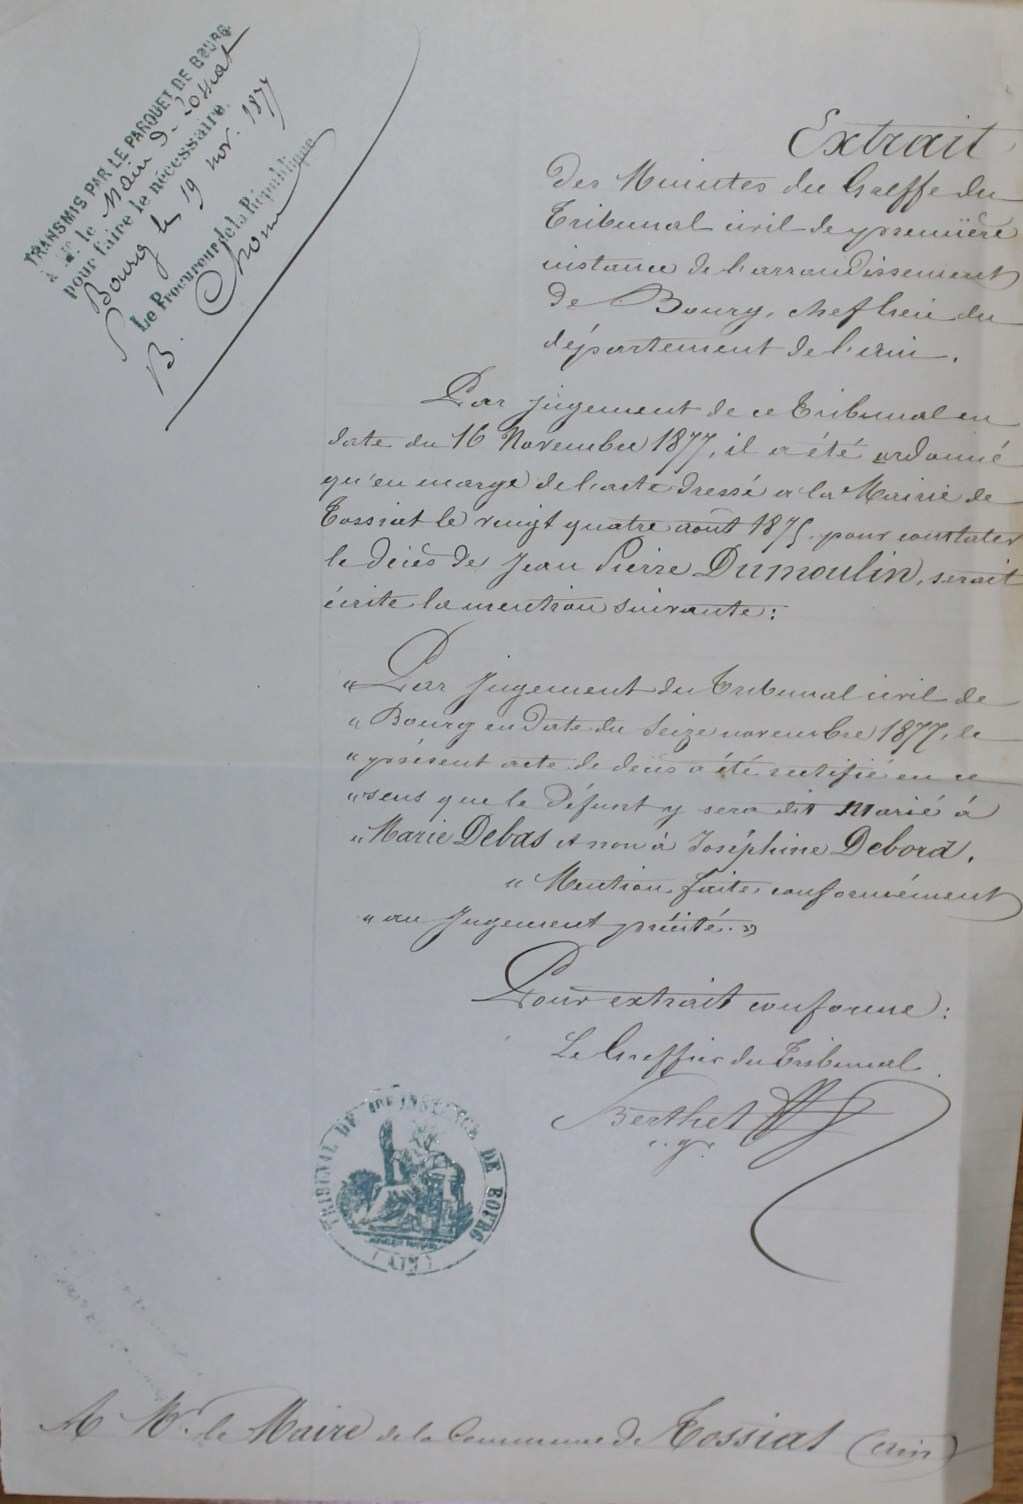 TRANSMIS PAR LE PARQUET DE BOURG
à Mr. le Maire de Tossiat
pour faire le nécessaire.
Bourg le 19 nov. 1877
Le Procureur de la République
B.
Extrait
des Minutes du Greffe du
Tribunal civil de première
instance de l'arrondissement
de Bourg, chef lieu du
département de l'ain.
Par jugement de ce Tribunal en
date du 16 Novembre 1877, il a été ordonné
qu'en marge de l'acte dressé a la Mairie de
Tossiat le vingt quatre août 1875, pour constater
le décès de Jean Pierre Dumoulin, serait
écrite la mention suivante:
"Par Jugement du Tribunal civil de
"Bourg en date du Seize novembre 1877, le
"présent acte de décès a été rectifié en ce
"sens que le défunt y sera dit marié à
"Marie Debas et non à Joséphine Debord.
"Mention faite conformément
"au Jugement précité."
Pour extrait conforme:
Le Greffier du Tribunal
Berthet
TRIBUNAL DE 1RE INSTANCE DE BOURG
(AIN)
A Mr. le Maire de la Commune de Tossiat (ain)